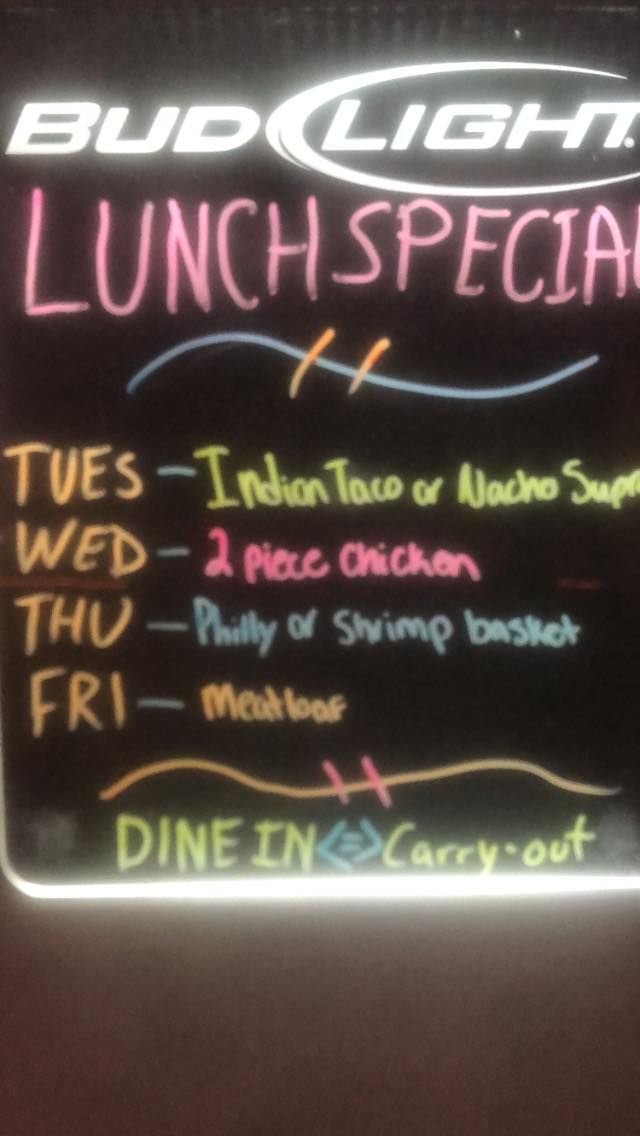 BUD LIGHT.
LUNCH SPECIAL
TUES - Indian Taco or Nacho Supr
WED - 2 piece chicken
THU - Philly or Shrimp basket
FRI - Meatloaf
DINE IN <=> Carry-out